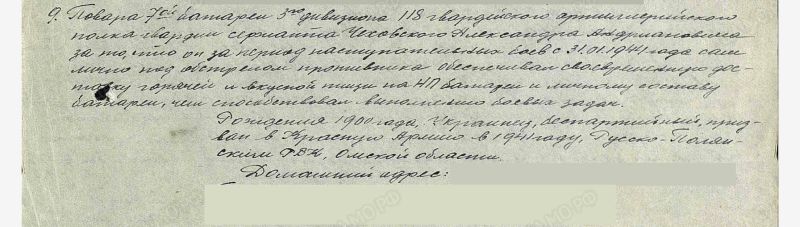 9. Повара 7ой батареи 3го дивизиона 118 гвардейского артиллерийского
полка гвардии сержанта Чеховского Александра Андриановича
за то, что он за период наступательных боев с 31.01.1944 года сам
лично под обстрелом противника обеспечивал своевременную дос-
тавку горячей и вкусной пищи на НП батареи и личному составу
батареи, чем способствовал выполнению боевых задач.
Рождения 1900 года, Украинец, беспартийный, приз-
ван в Красную Армию в 1941 году, Русско-Полян-
ским РВК, Омской области.
Домашний адрес: